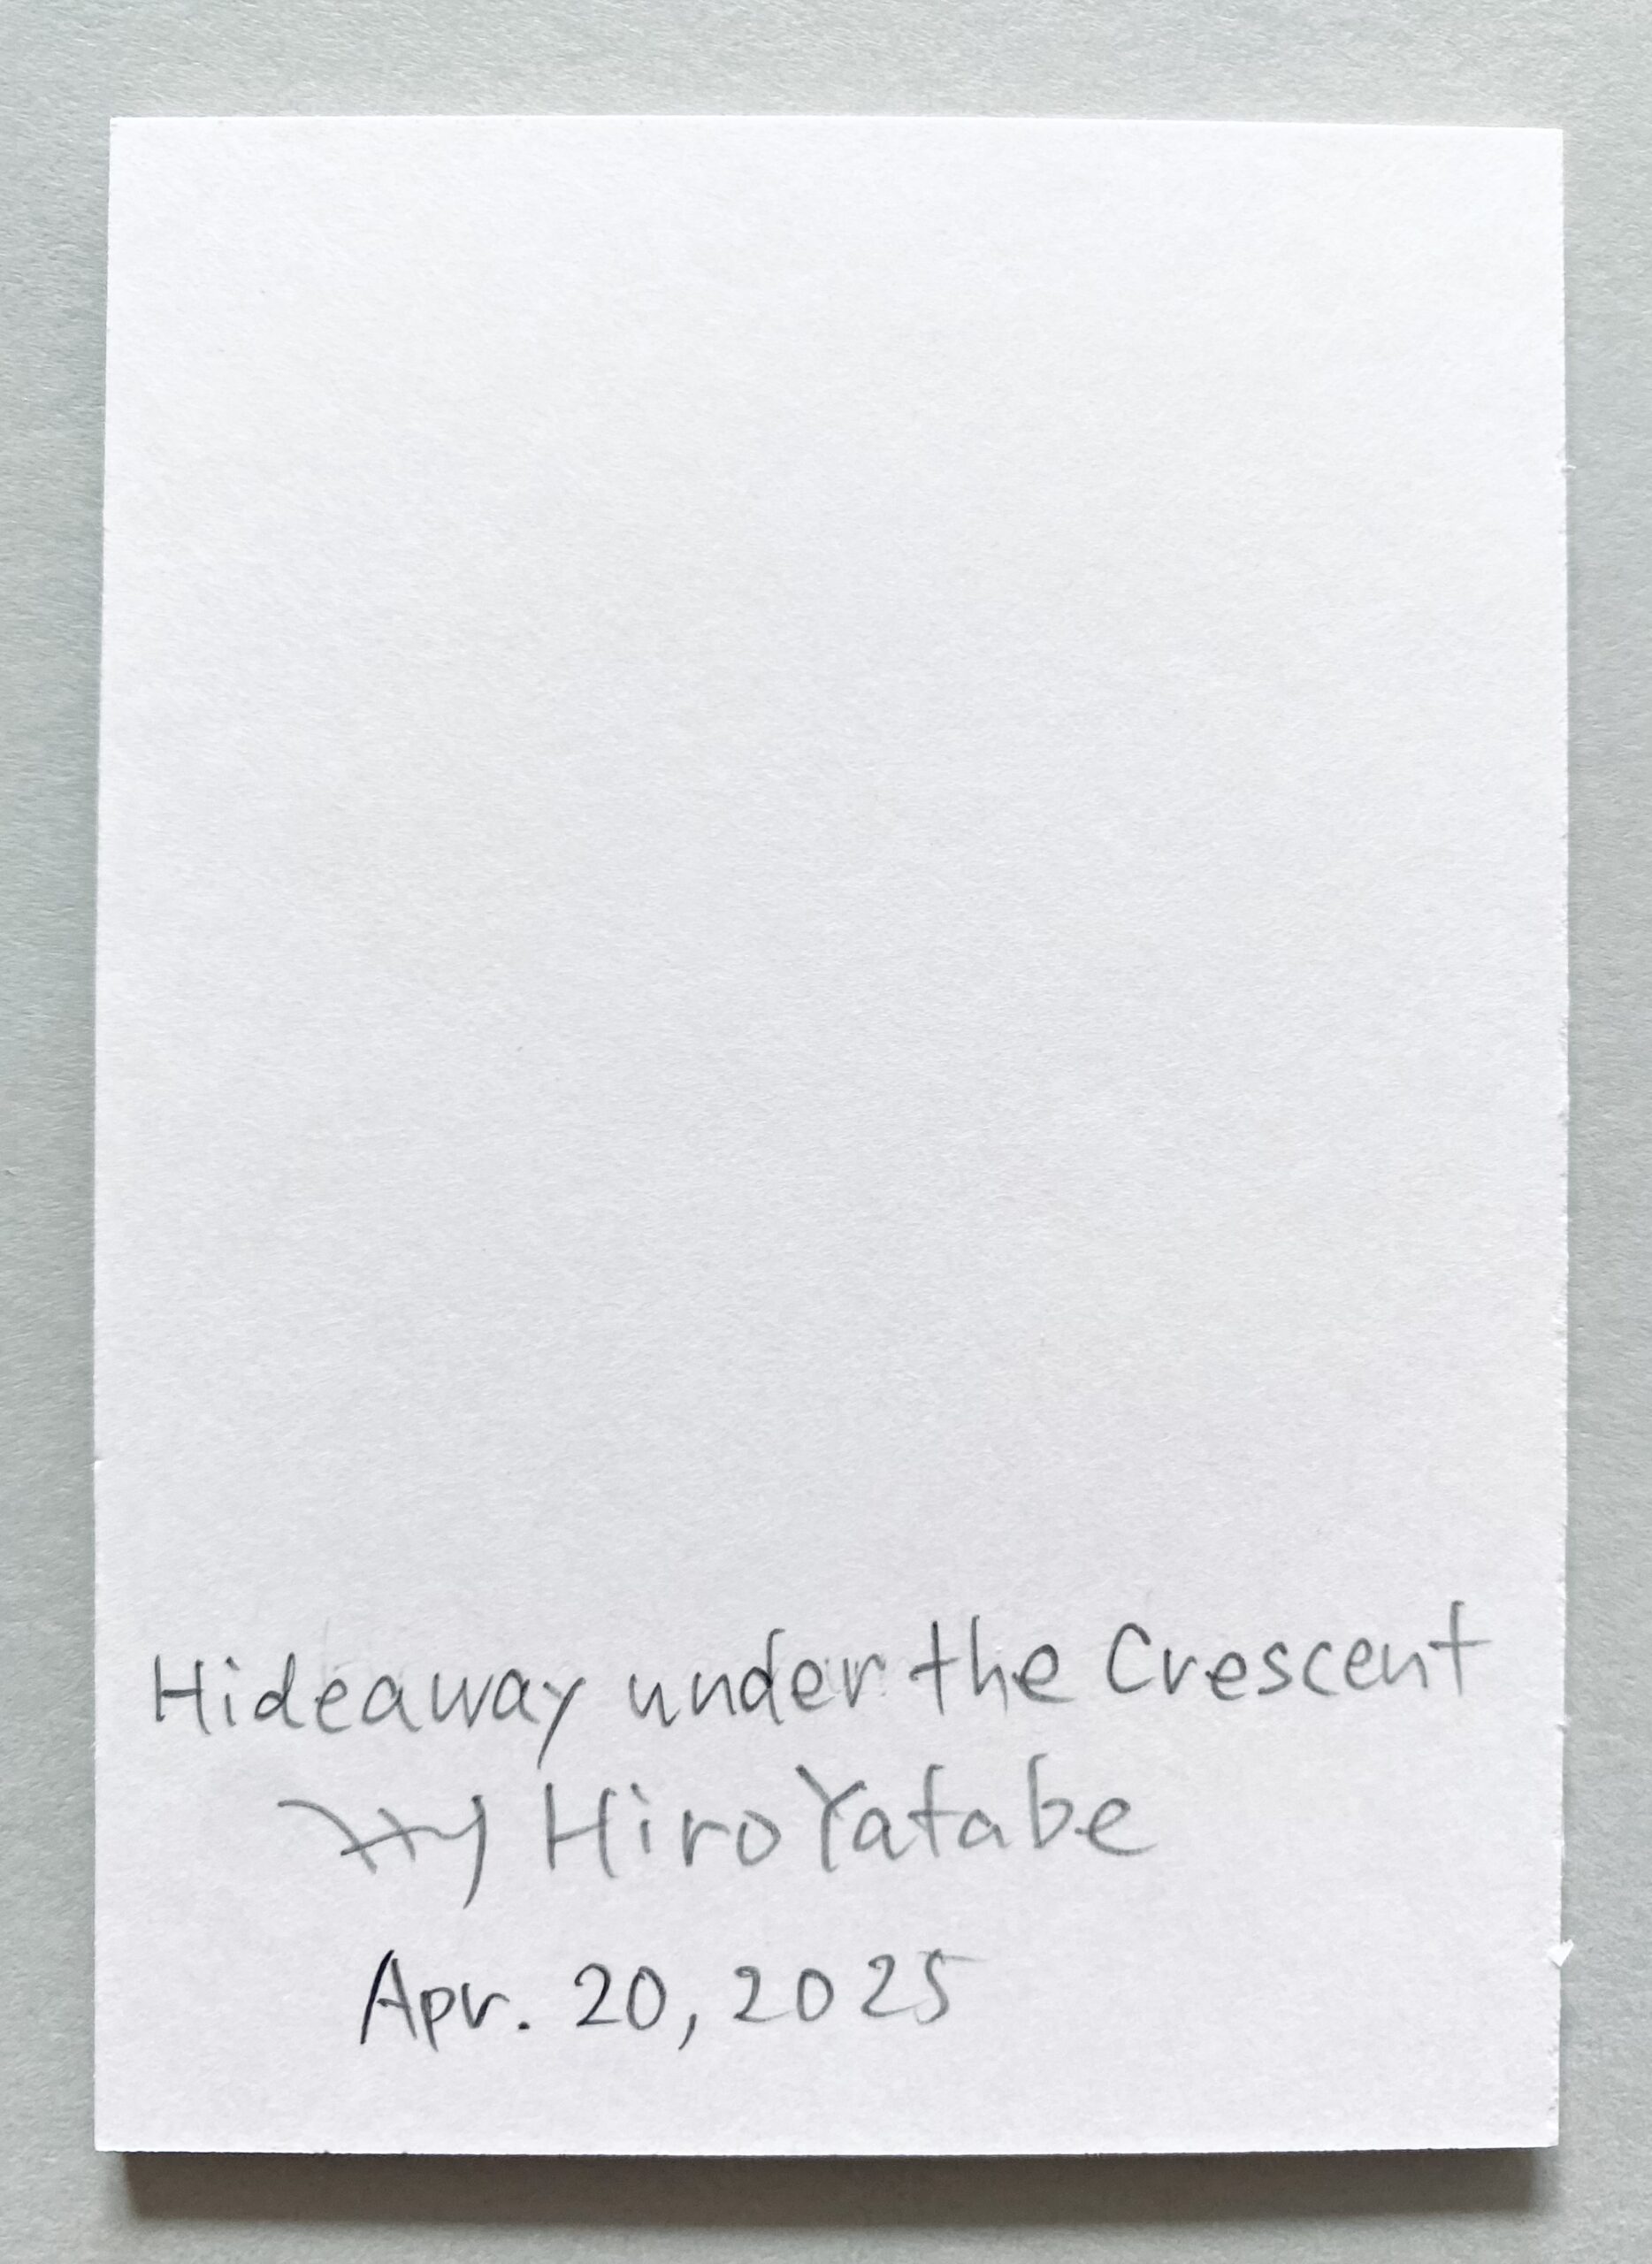 Hideaway under the Crescent
HY Hiro Yatabe
Apr. 20, 2025